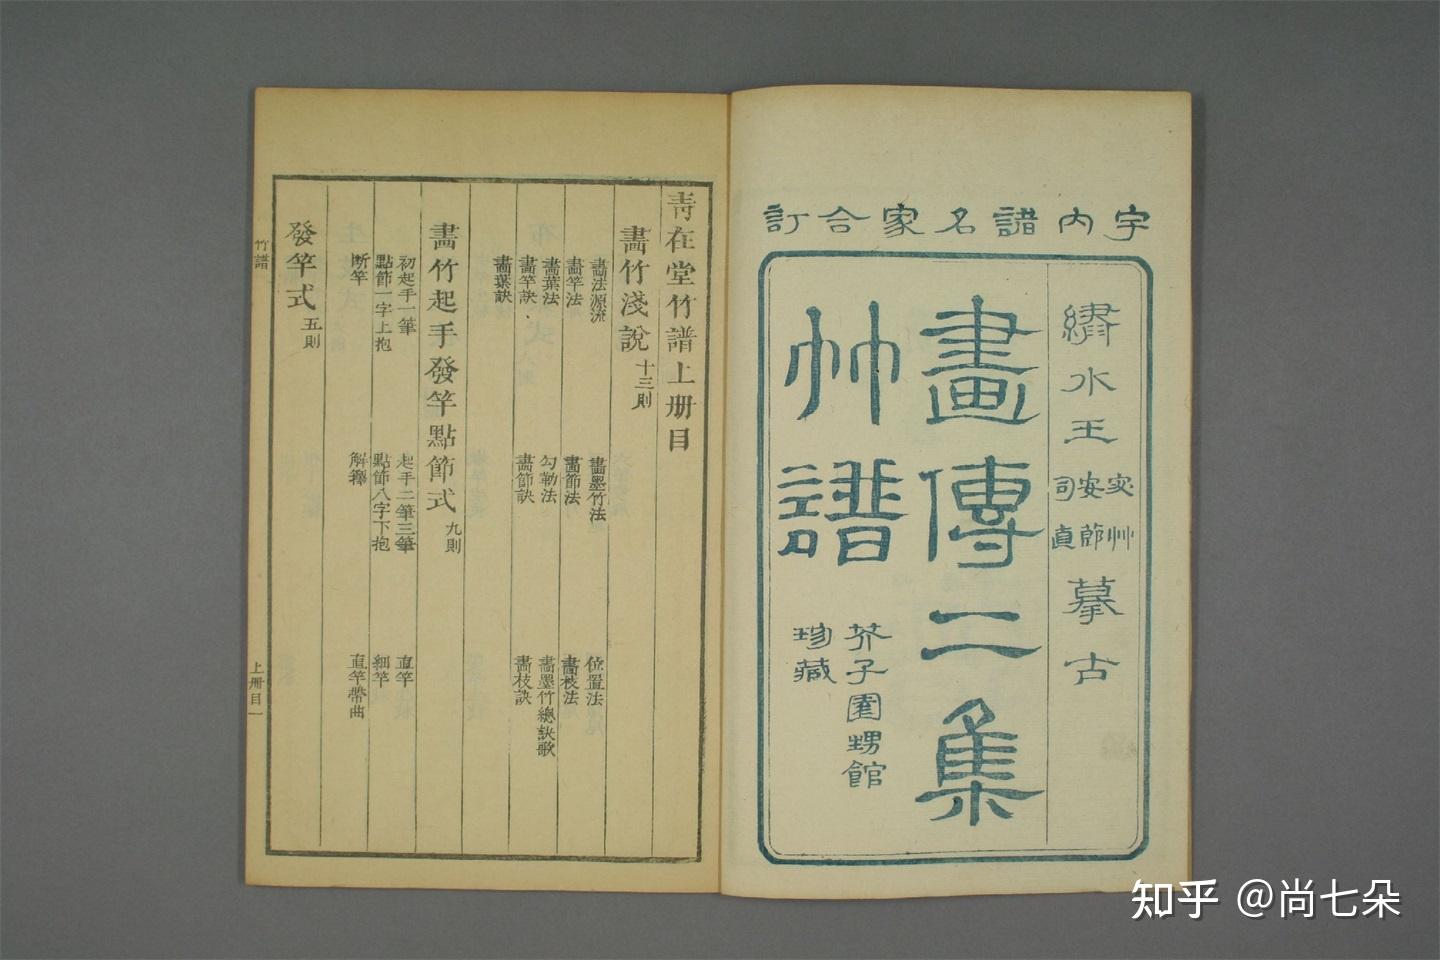 宇內諸名家合訂
繡水王宓艸安節司直摹古
畫傳二集
竹譜
芥子園甥館
珍藏
青在堂竹譜上册目
畫竹淺說十三則
畫法源流 畫墨竹法 位置法
畫竿法 畫節法 畫枝法
畫葉法 勾勒法 畫墨竹總訣歌
畫竿訣 畫節訣 畫枝訣
畫葉訣
畫竹起手發竿點節式九則
初起手一筆 起手二筆三筆 直竿
點節一字上抱 點節八字下抱 細竿
断竿 解籜 直竿帶曲
發竿式五則
竹譜
上册目一
知乎 @尚七朵